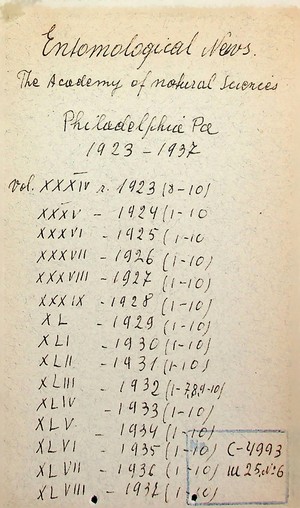 Entomological News.
The Academy of natural Sciences
Philadelphia Pa
1923 - 1937
Vol. XXXIV r. 1923 (8-10)
XXXV - 1924 (1-10
XXXVI - 1925 (1-10
XXXVII - 1926 (1-10)
XXXVIII - 1927 (1-10)
XXXIX - 1928 (1-10)
XL - 1929 (1-10)
XLI - 1930 (1-10)
XLII - 1931 (1-10)
XLIII - 1932 (1-7,8,9-10)
XLIV - 1933 (1-10)
XLV - 1934 (1-10)
XLVI - 1935 (1-10)
XLVII - 1936 (1-10)
XLVIII - 1937 (1-10)
C-4993
Ш 25, № 6